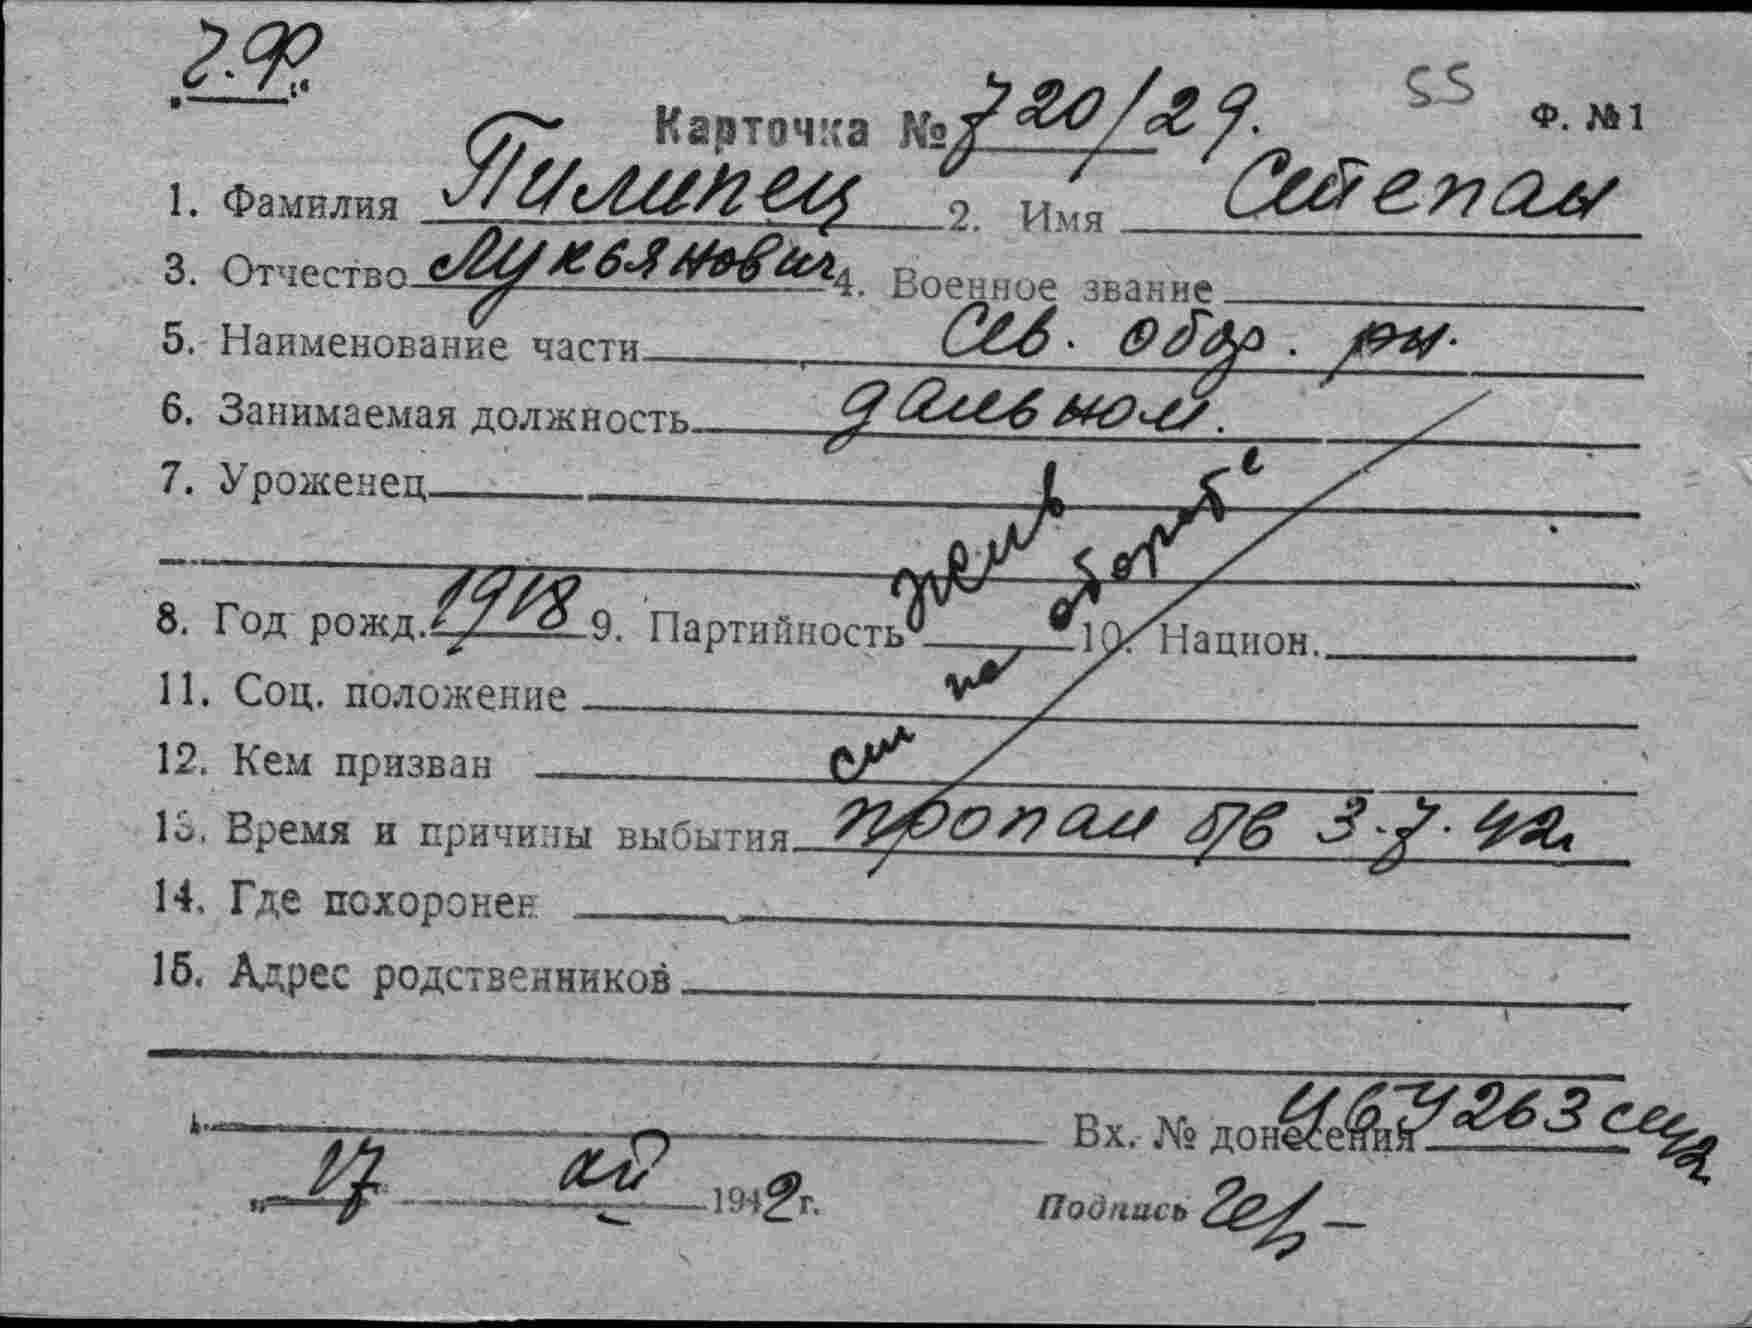 Ч.Ф.
55
Карточка № 720/29. Ф. №1
1. Фамилия Пилипец 2. Имя Степан
3. Отчество Лукьянович 4. Военное звание
5. Наименование части Сев. обор. рн.
6. Занимаемая должность дальном.
7. Уроженец
8. Год рожд. 1918 9. Партийность 10. Национ.
11. Соц. положение
12. Кем призван
см на обороте
13. Время и причины выбытия пропал б/в 3.7.42г
14. Где похоронен
15. Адрес родственников
Вх. № донесения
„17 1942г. Подпись